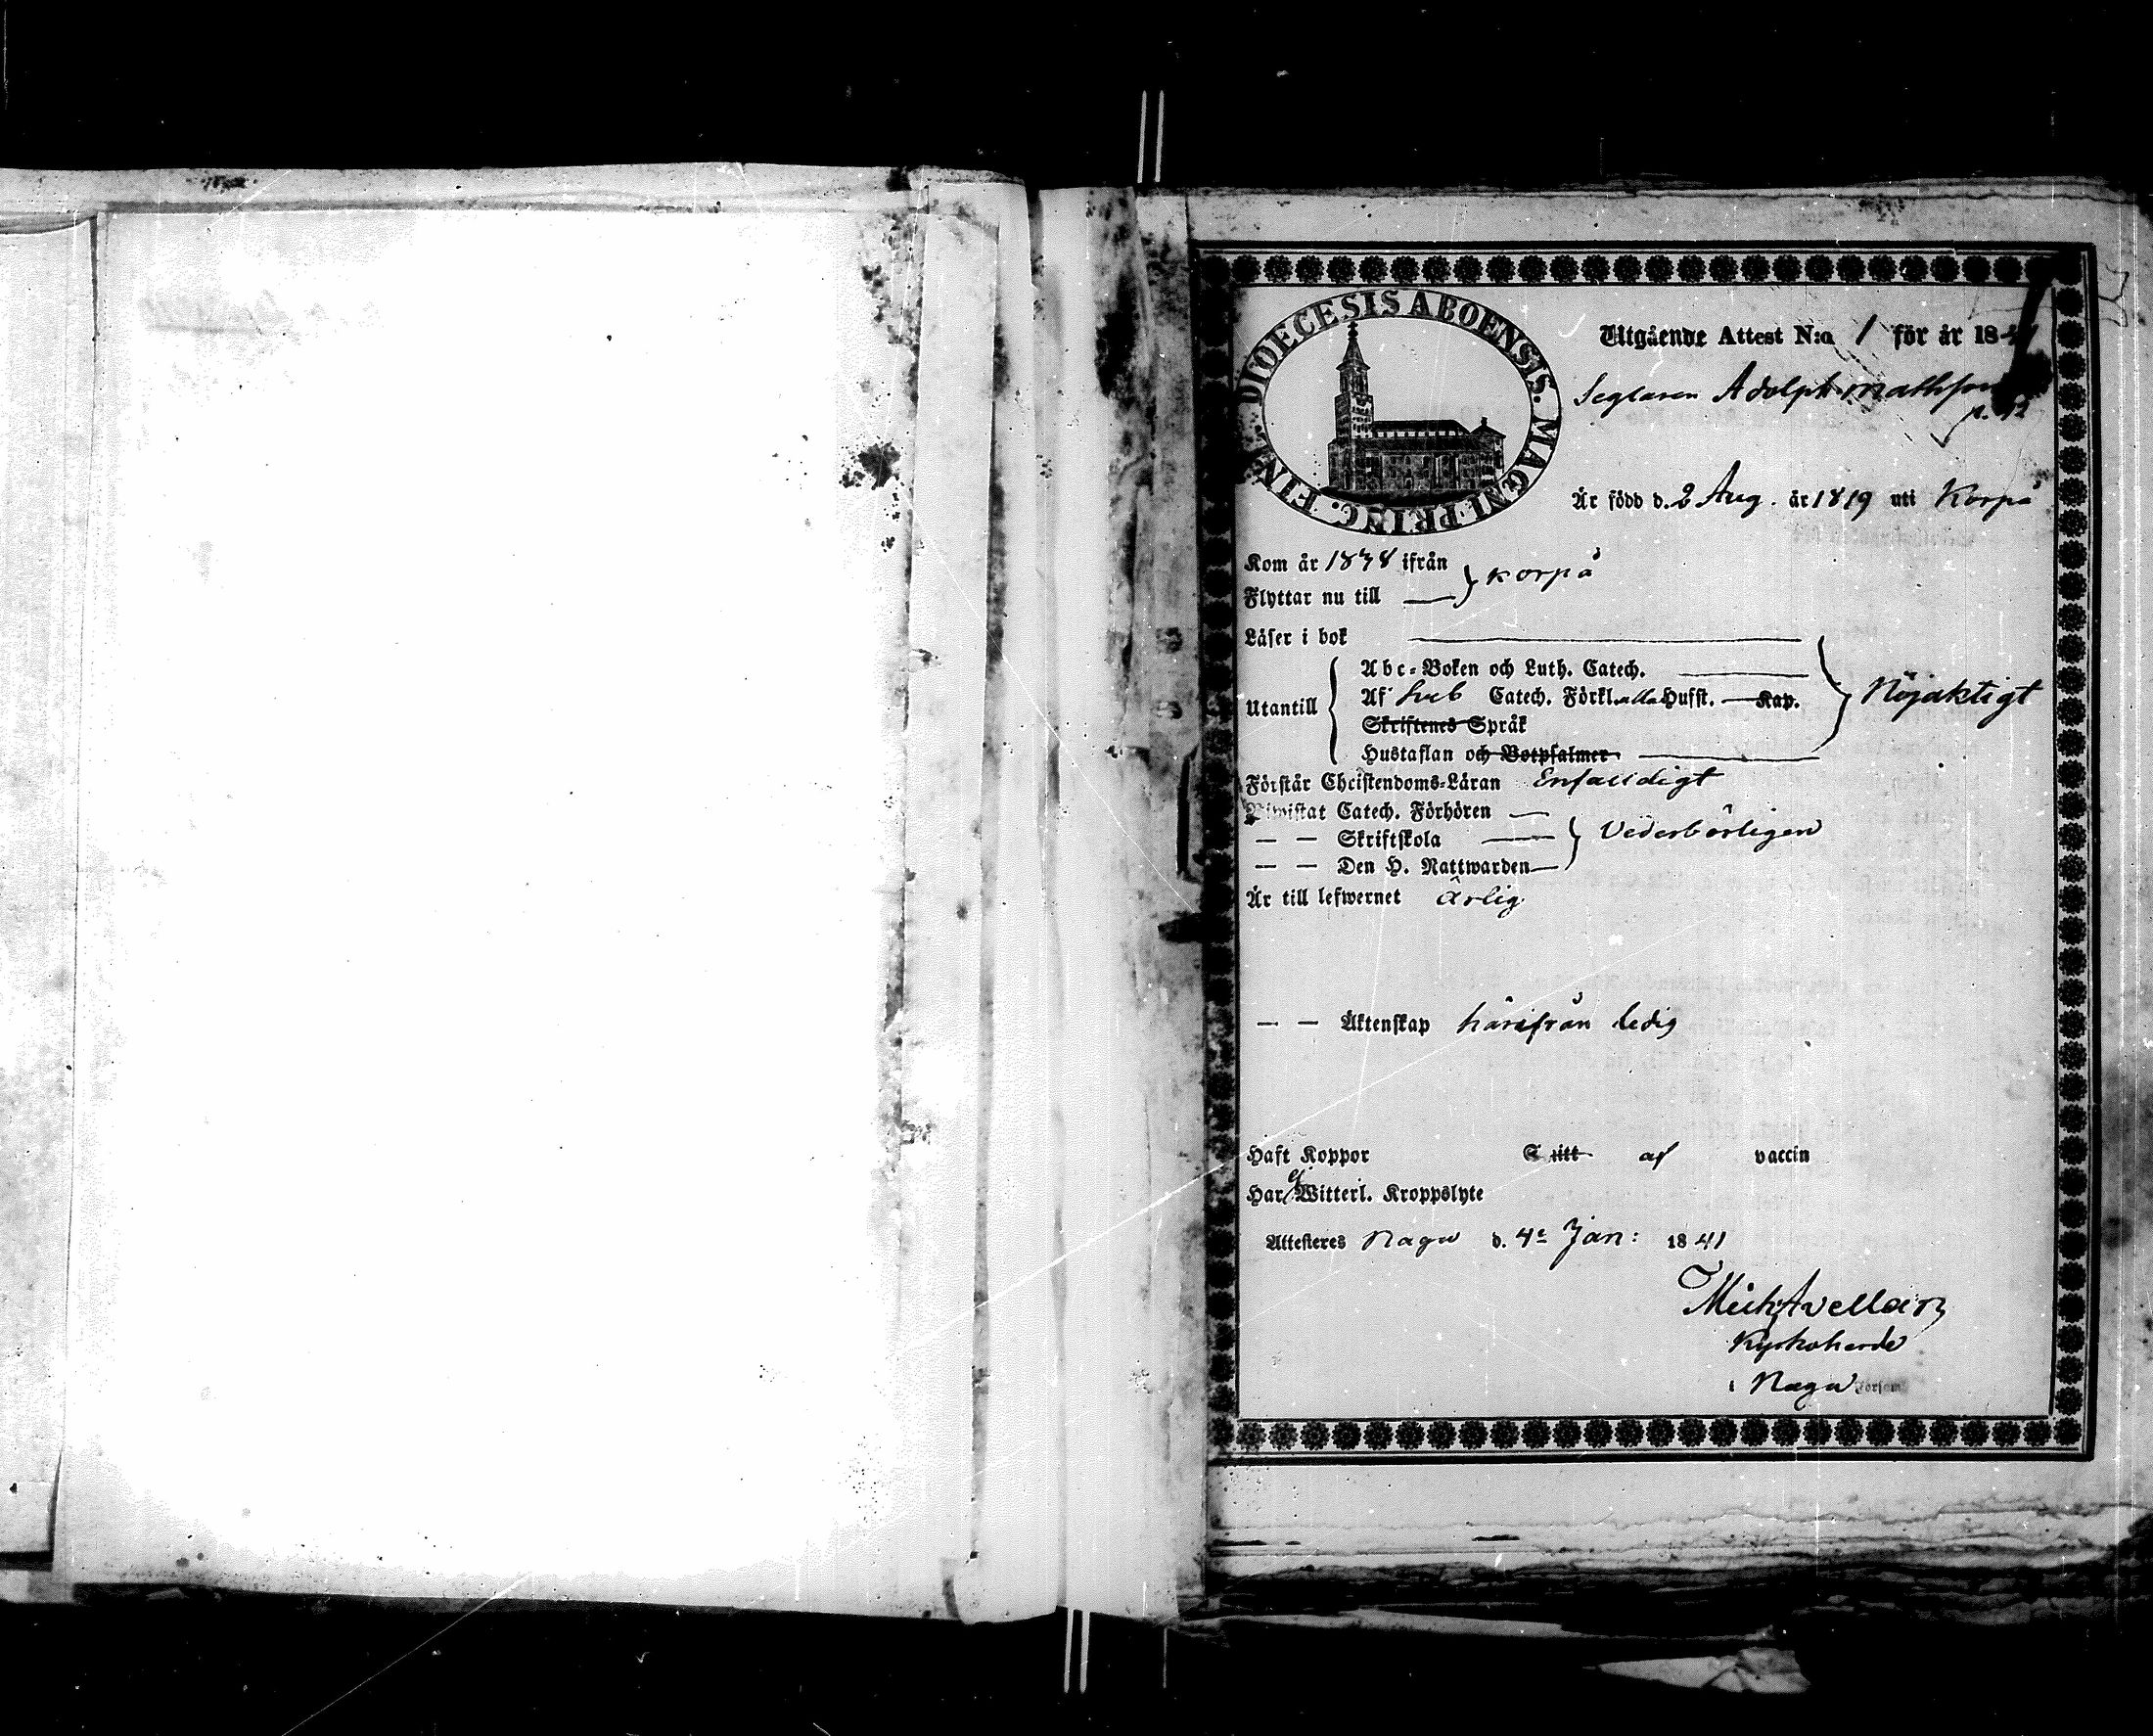 DIOECESIS ABOENSIS. MAGNI PRINC. FIN.
Utgående Attest N:o 1 för år 1841
Seglaren Adolph Mathsson
p. 12
Är född d. 2 Aug. år 1819 uti Korpå
Kom år 1838 ifrån
Korpå
Flyttar nu till
Läser i bok
Abc-Boken och Luth. Catech.
Utantill
Af Sveb Catech. Förkl. alla Hufst. Kap.
Nöjaktigt
Skriftenes Språk
Hustaflan och Botpsalmer
Förstår Christendoms-Läran Enfaldigt
Biwistat Catech. Förhören
— — Skriftskola
Vederbörligen
— — Den H. Nattwarden
Är till lefwernet ärlig
— — Äktenskap härifrån ledig
Haft Koppor af vaccin
Har ej Witterl. Kroppslyte
Attesteres Nagu d. 4e Jan: 1841
Mich Avellan
Kyrkoherde
i Nagu Försam